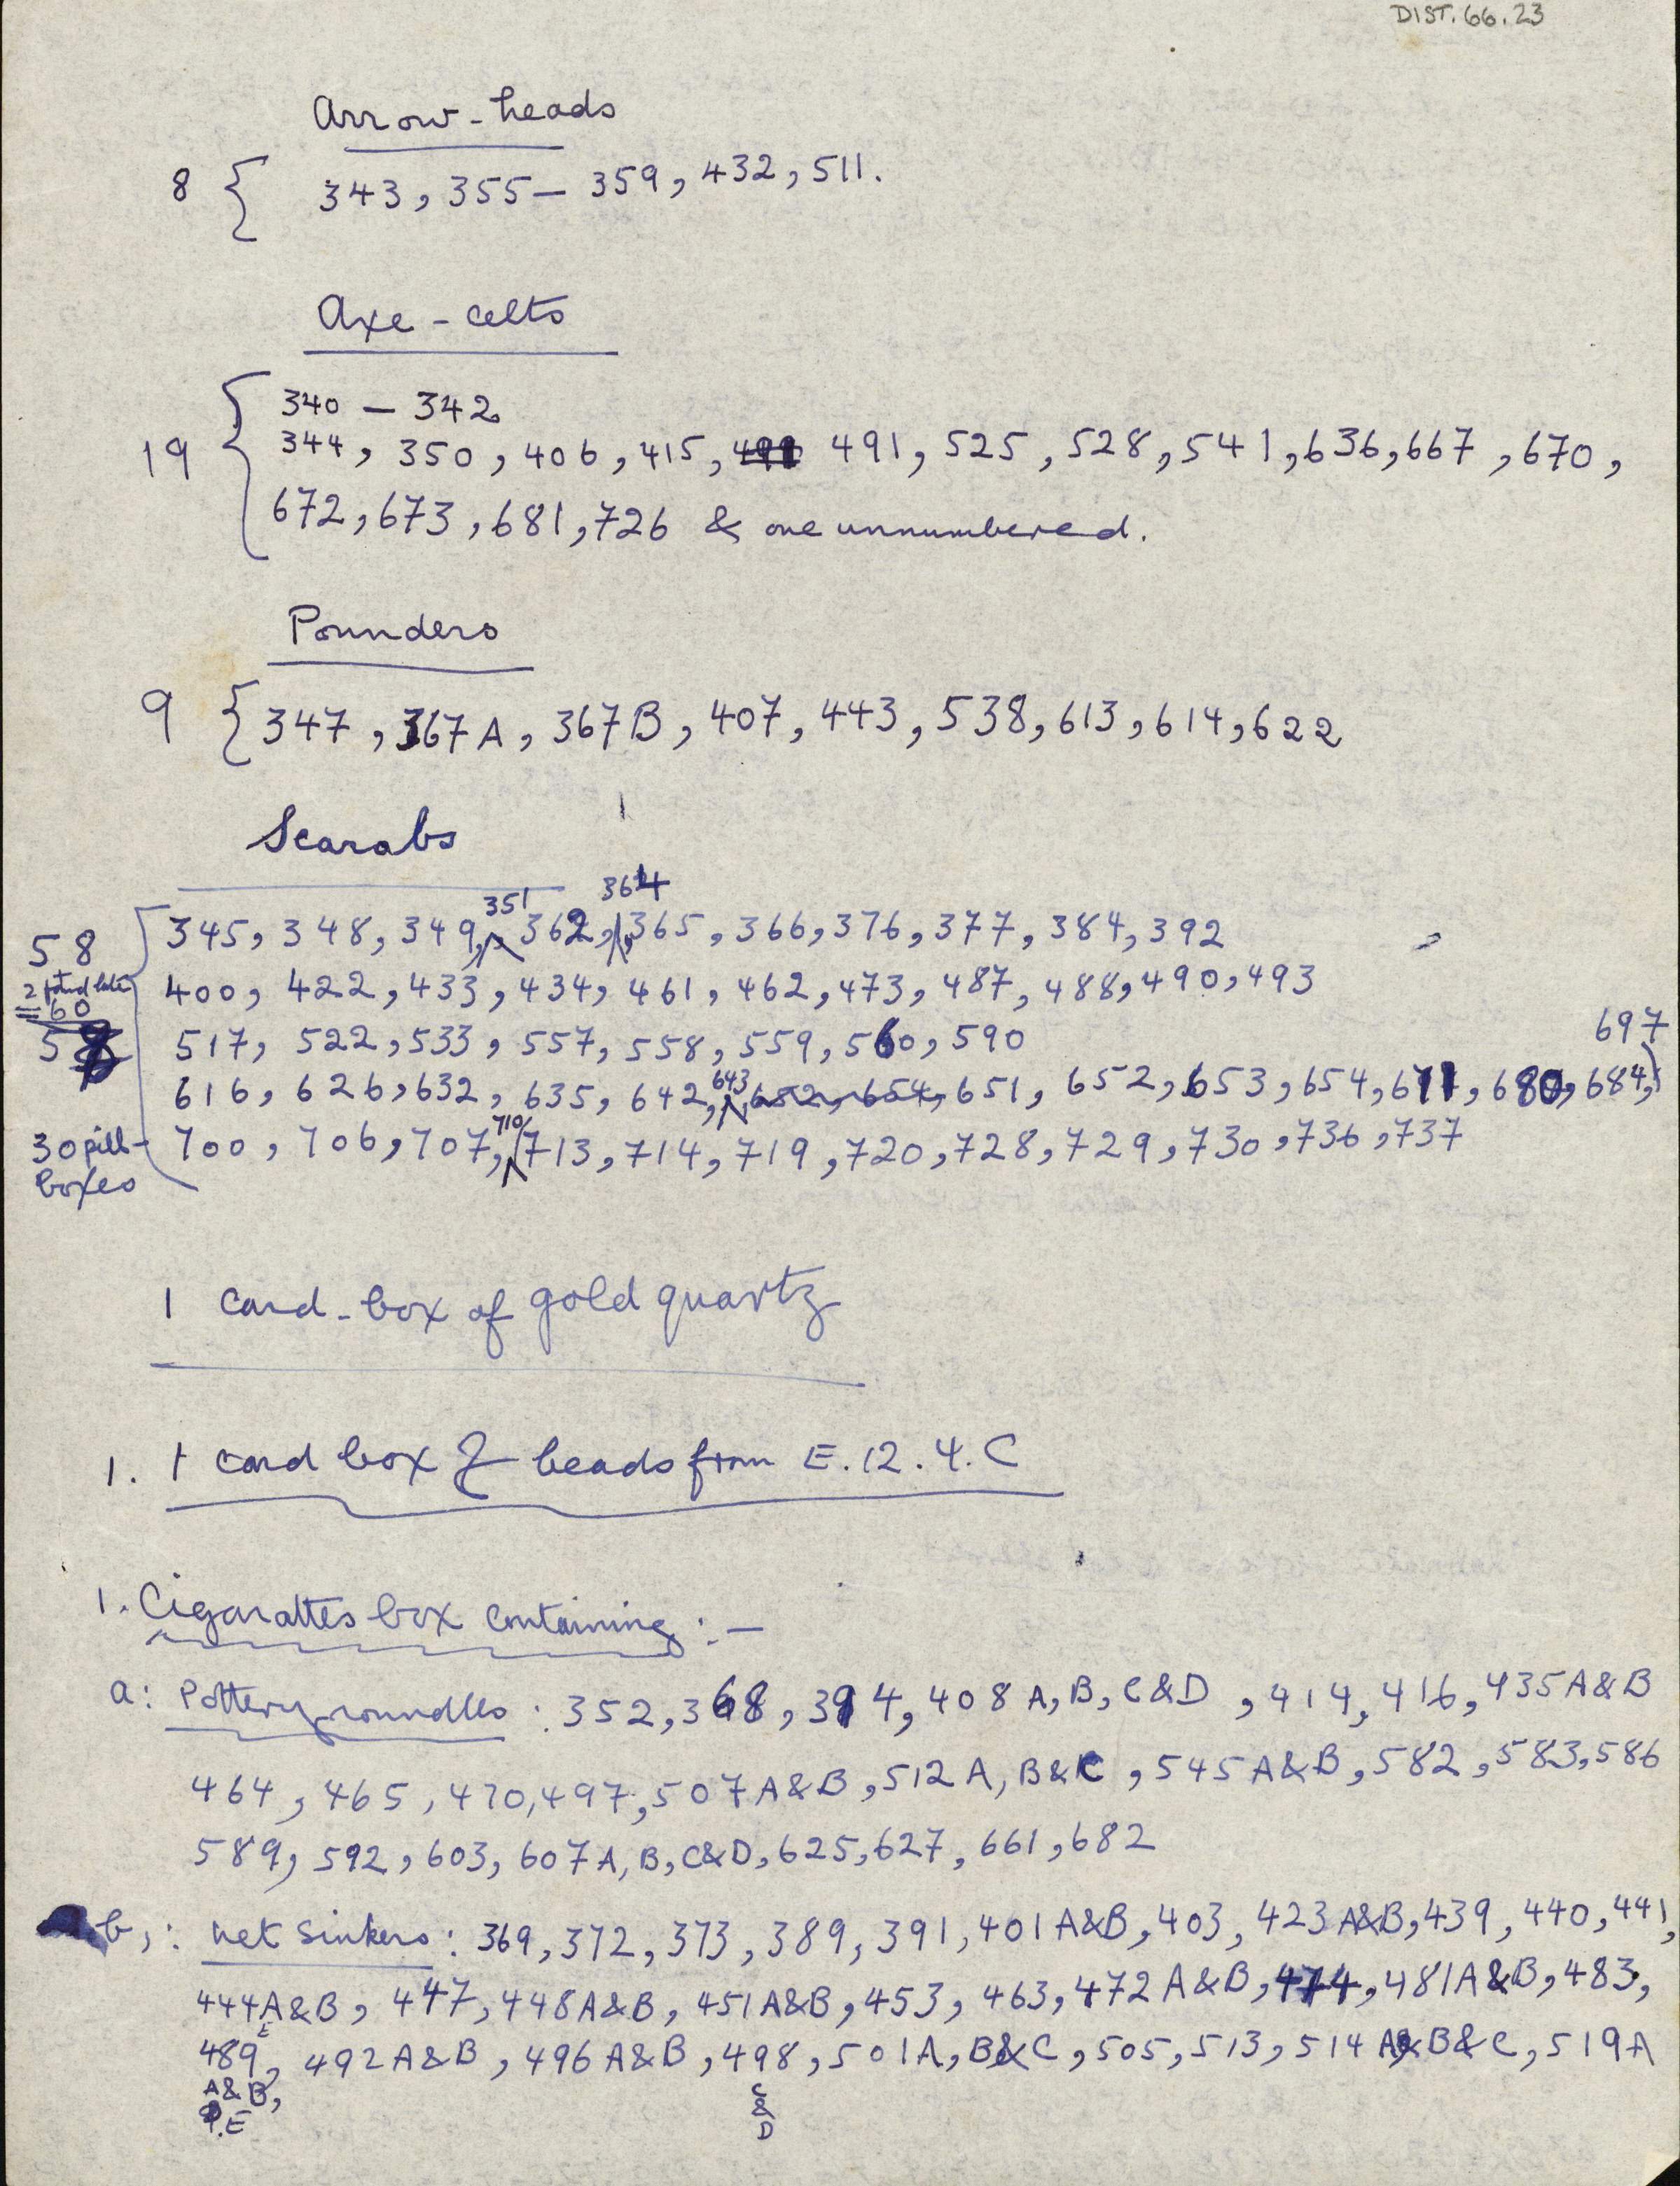 DIST. 66.23
Arrow-heads
8 { 343, 355 – 359, 432, 511.
Axe-celts
340 – 342
19 { 344, 350, 406, 415, 491, 525, 528, 541, 636, 667, 670,
672, 673, 681, 726 & one unnumbered.
Pounders
9 { 347, 367A, 367B, 407, 443, 538, 613, 614, 622
Scarabs
351 364
58 345, 348, 349, 362, 365, 366, 376, 377, 384, 392
2 = 60 400, 422, 433, 434, 461, 462, 473, 487, 488, 490, 493
517, 522, 533, 557, 558, 559, 560, 590 697
643
616, 626, 632, 635, 642, 682, 654, 651, 652, 653, 654, 671, 680, 684,
710
30 pill-boxes 700, 706, 707, 713, 714, 719, 720, 728, 729, 730, 736, 737
1 card-box of gold quartz
1. 1 card box of beads from E.12.4.C
1. Cigarattes box containing :–
a: Pottery roundles : 352, 368, 394, 408 A, B, C&D, 414, 416, 435A&B
464, 465, 470, 497, 507A&B, 512A, B&C, 545A&B, 582, 583, 586
589, 592, 603, 607A, B, C&D, 625, 627, 661, 682
b, : net sinkers : 369, 372, 373, 389, 391, 401A&B, 403, 423A&B, 439, 440, 441,
444A&B, 447, 448A&B, 451A&B, 453, 463, 472A&B, 474, 481A&B, 483,
489, 492A&B, 496A&B, 498, 501A, B&C, 505, 513, 514 A B&C, 519A
A&B, C & D
E